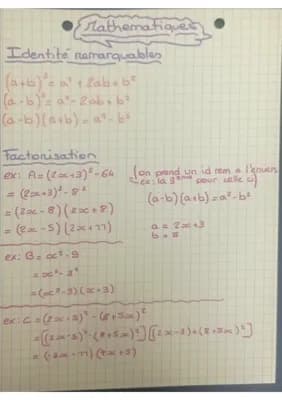 Mathematiques
Identité remarquables
(a+b)² = a² + 2ab + b²
(a-b)² = a² - 2ab + b²
(a-b)(a+b) = a² - b²
Factorisation
ex: A = (2x+3)² - 64
= (2x+3)² - 8²
= (2x-8)(2x+8)
= (2x-5)(2x+11)
(on prend un id rem à l'envers
ex: la 3ème pour celle ci)
(a-b)(a+b) = a² - b²
a = 2x+3
b =
ex: B = x² - 9
= x² - 3²
= (x²-3)(x+3)
ex: C = (2x-3)² - (8+5x)²
= [(2x-3)² - (8+5x)²][(2x-3)+(8+5x)²]
= (-3x-11)(7x+5)